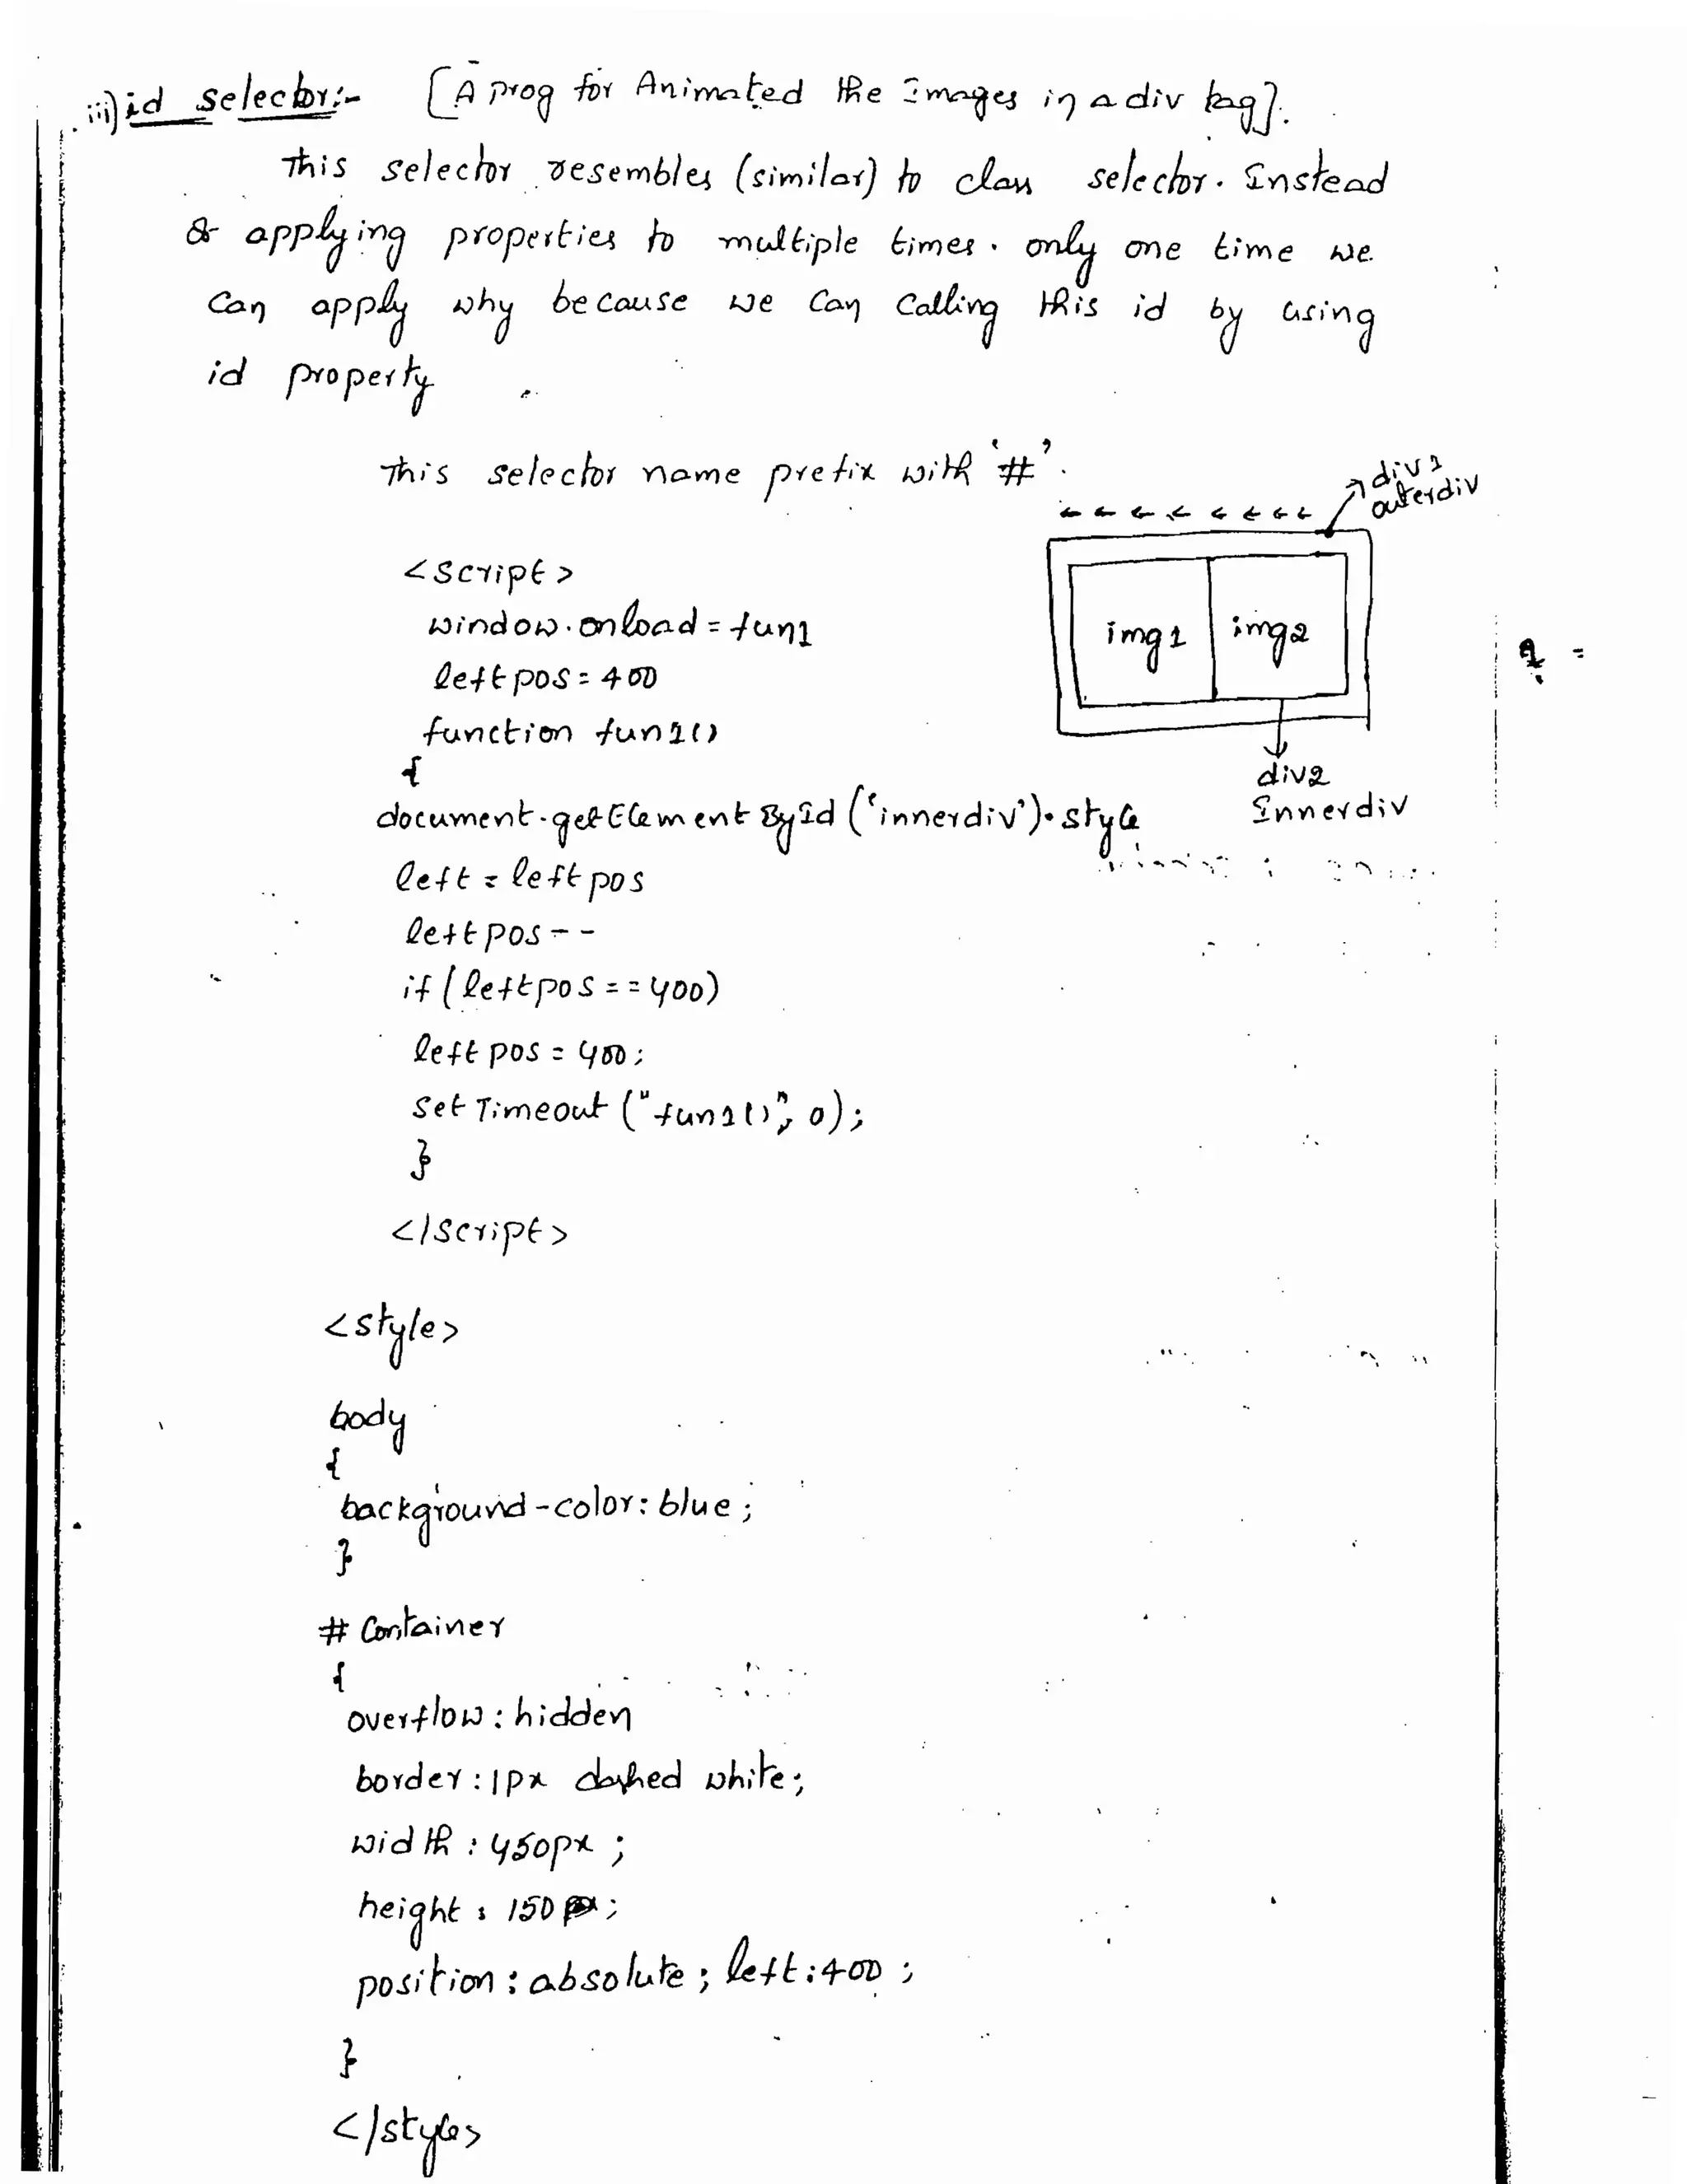 iii) id selector:- [A prog for Animated the Images in a div tag].
This selector resembles (similar) to class selector. Instead
of applying properties to multiple times. only one time we
can apply why because we can calling this id by using
id property
This selector name prefix with '#'.
div1
outerdiv
<script>
window.onload = fun1
img1 img2
leftpos = 400
function fun1()
{
div2
Innerdiv
document.getElementById('innerdiv').style
left = leftpos
leftpos--
if (leftpos == 400)
leftpos = 400;
setTimeout ("fun1()", 0);
}
</script>
<style>
body
{
background-color: blue;
}
# Container
{
overflow: hidden
border: 1px dashed white;
width: 450px;
height: 150px;
position: absolute; left: 400;
}
</style>